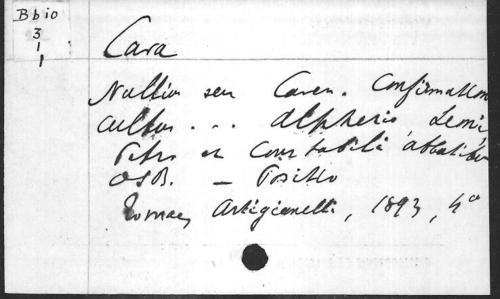 Bbio
3
1
1
Cava
Nullius seu Caven. Confirmation
cultus ... Alpherio, Leoni,
Petro et Constabili, abbatibus
OSB. — Positio
Romae, Artigianelli, 1893, 4°